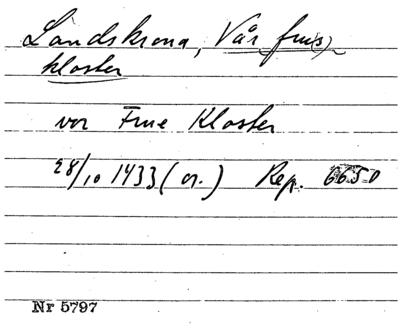 Landskrona, Vår fru(s)
kloster
vor Frue Kloster
28/10 1433 (or.) Rep. 6650
Nr 5797